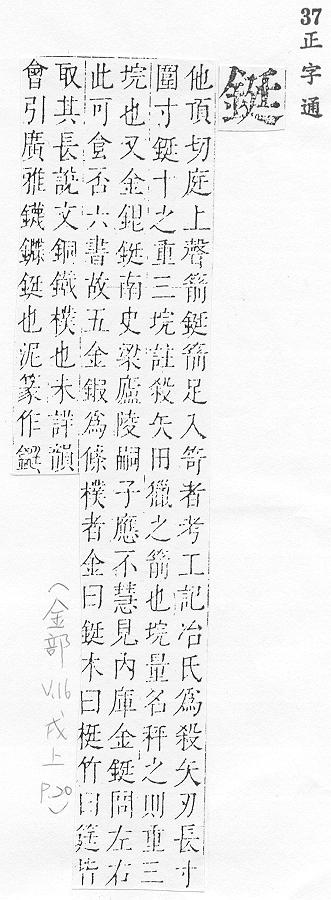 37 正字通
鋌
他頂切庭上聲箭鋌箭足入笴者考工記冶氏爲殺矢刃長寸
圍寸鋌十之重三垸註殺矢田獵之箭也垸量名秤之則重三
垸也又金鋌南史梁廬陵嗣子應不慧見內庫金鋌問左右
此可食否六書故五金鍜爲條樸者金曰鋌木曰梃竹曰筳皆
取其長說文銅鐵樸也未詳韻
會引廣雅鋌也泥篆作
(金部 V.16 戌上 P.20)